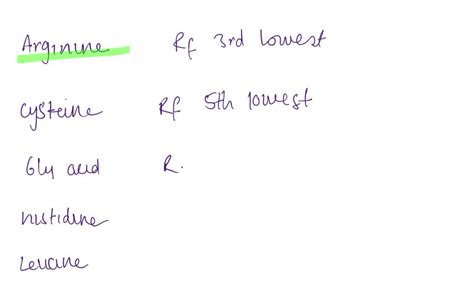 Arginine Rf 3rd lowest
cysteine Rf 5th lowest
Gly acid R.
histidine
Leucine